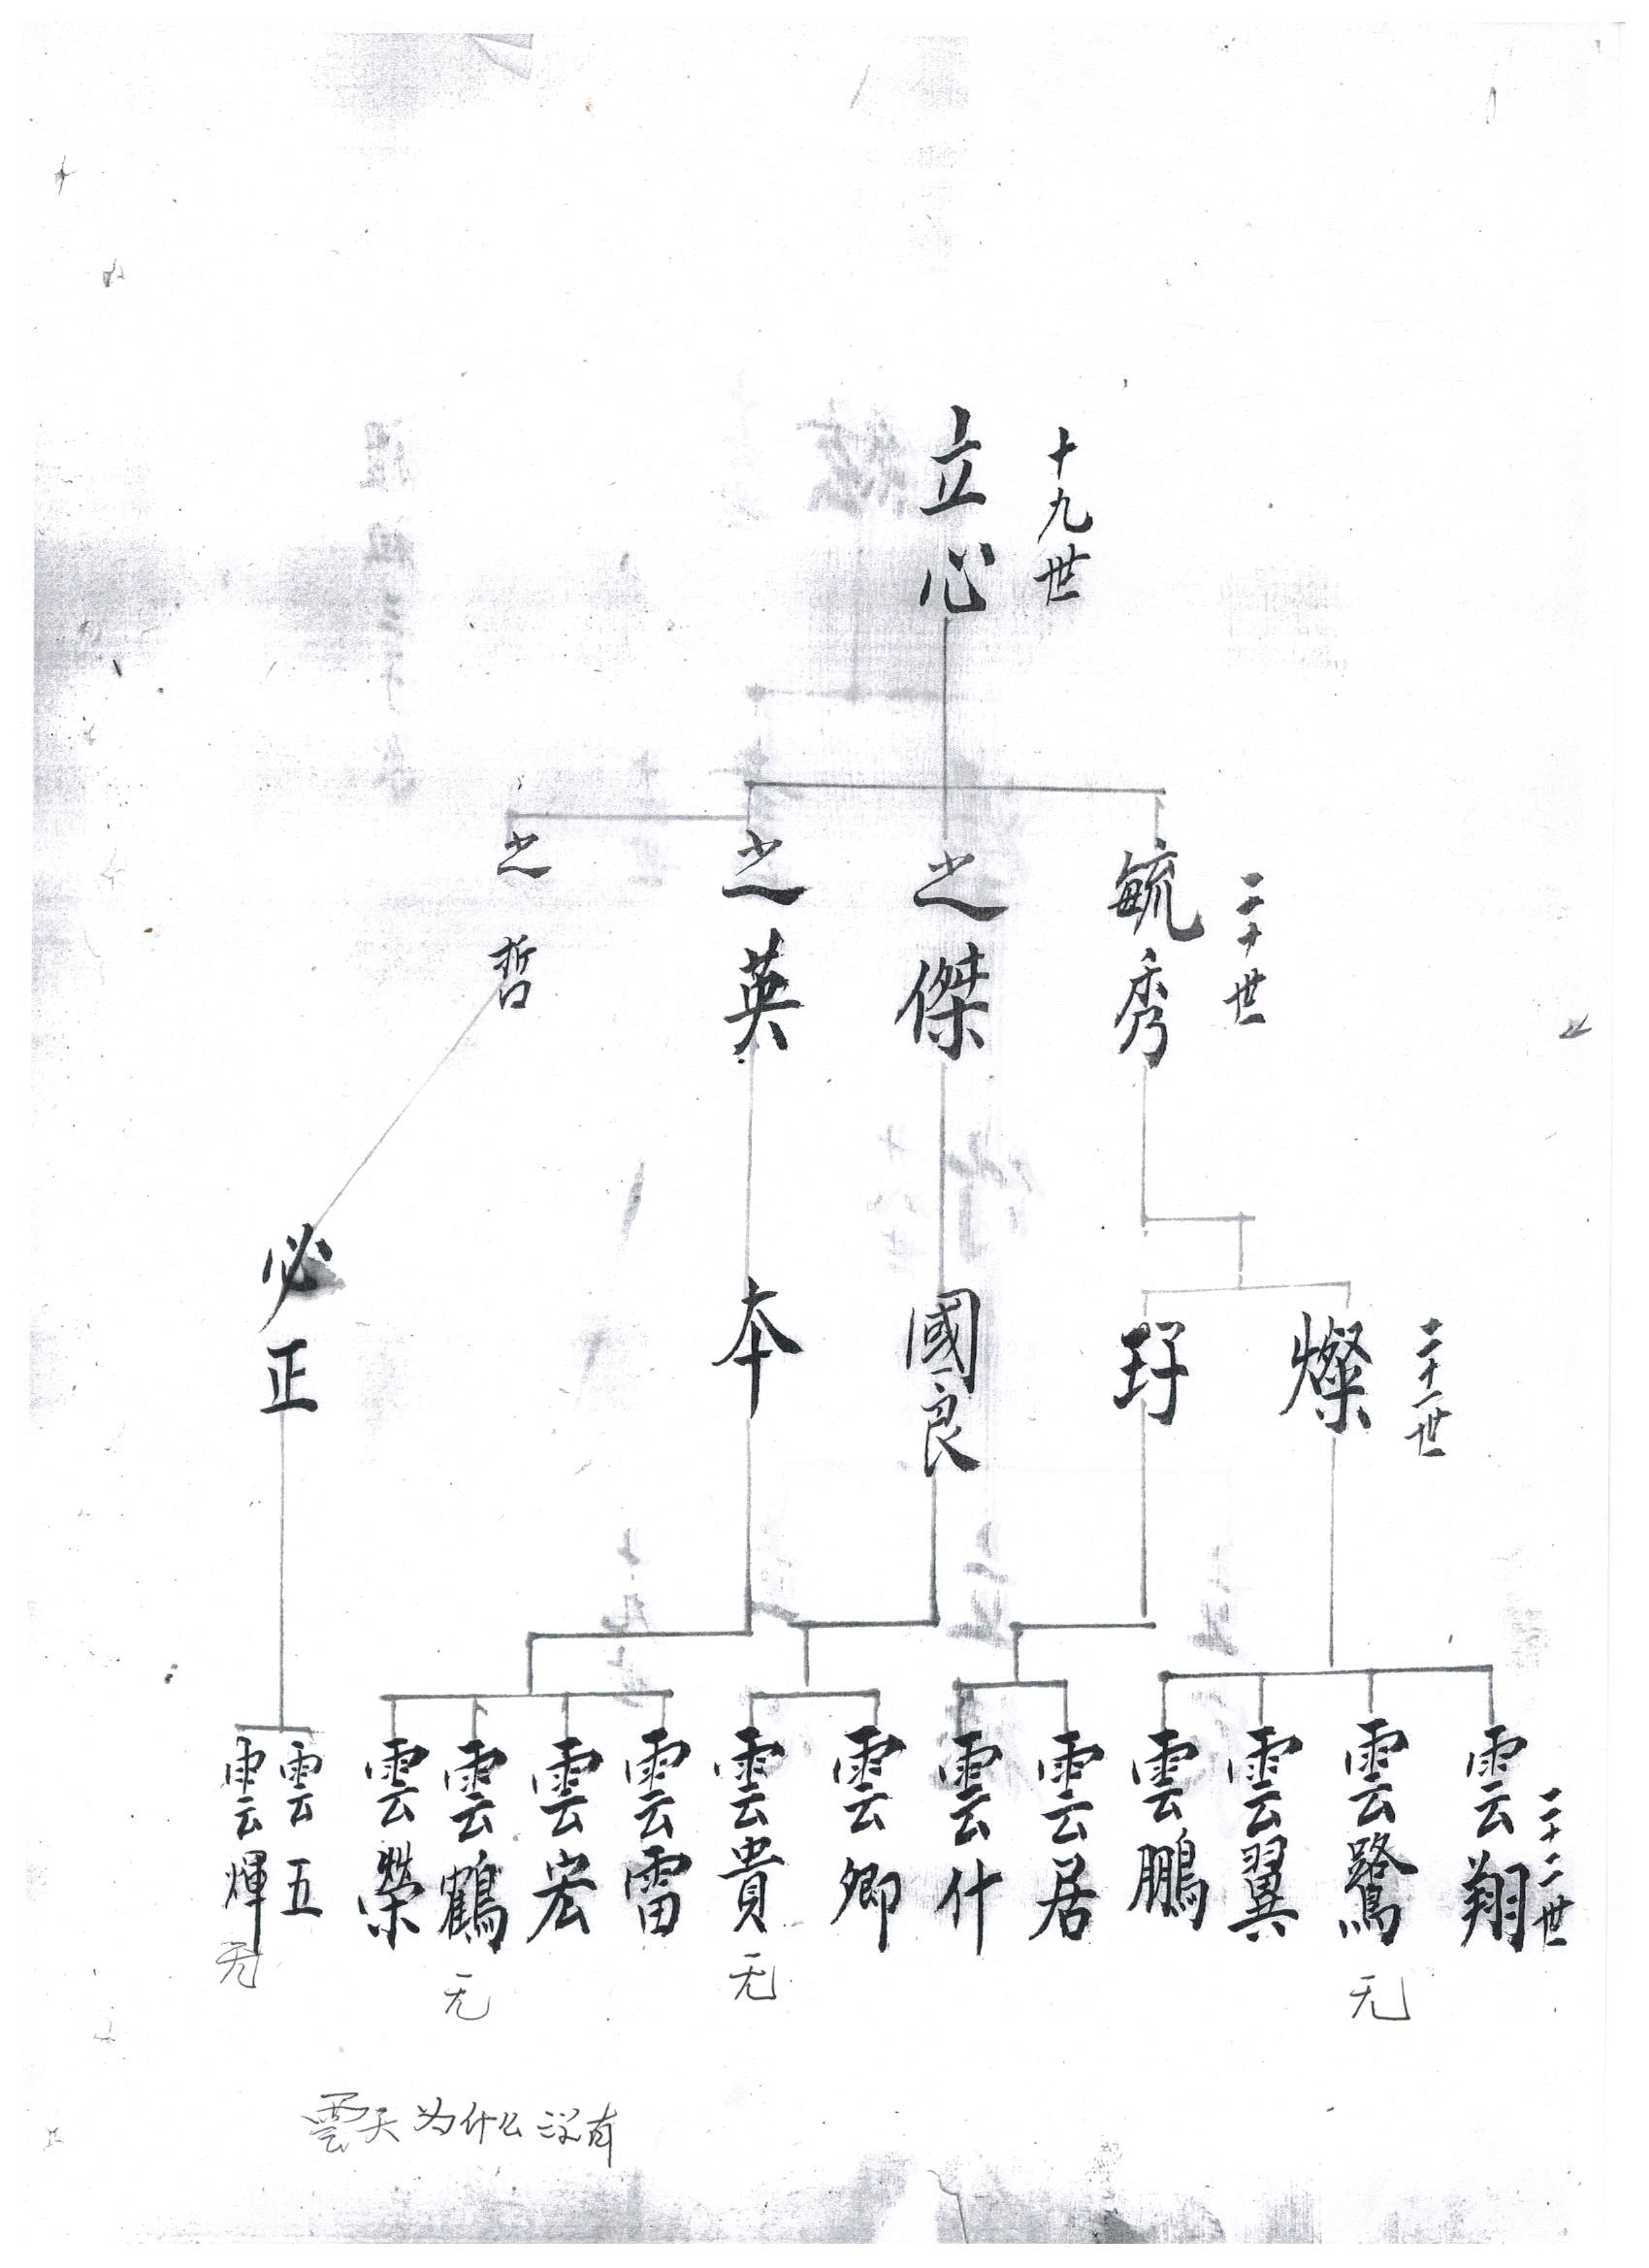 十九世
立心
二十世
毓秀
之傑
之英
之哲
二十一世
燦
玗
國良
本
必正
二十二世
雲翔
雲鷺
无
雲翼
雲鵬
雲居
雲什
雲卿
雲貴
无
雲雷
雲宏
雲鶴
无
雲榮
雲五
雲煇
无
雲天为什么没有